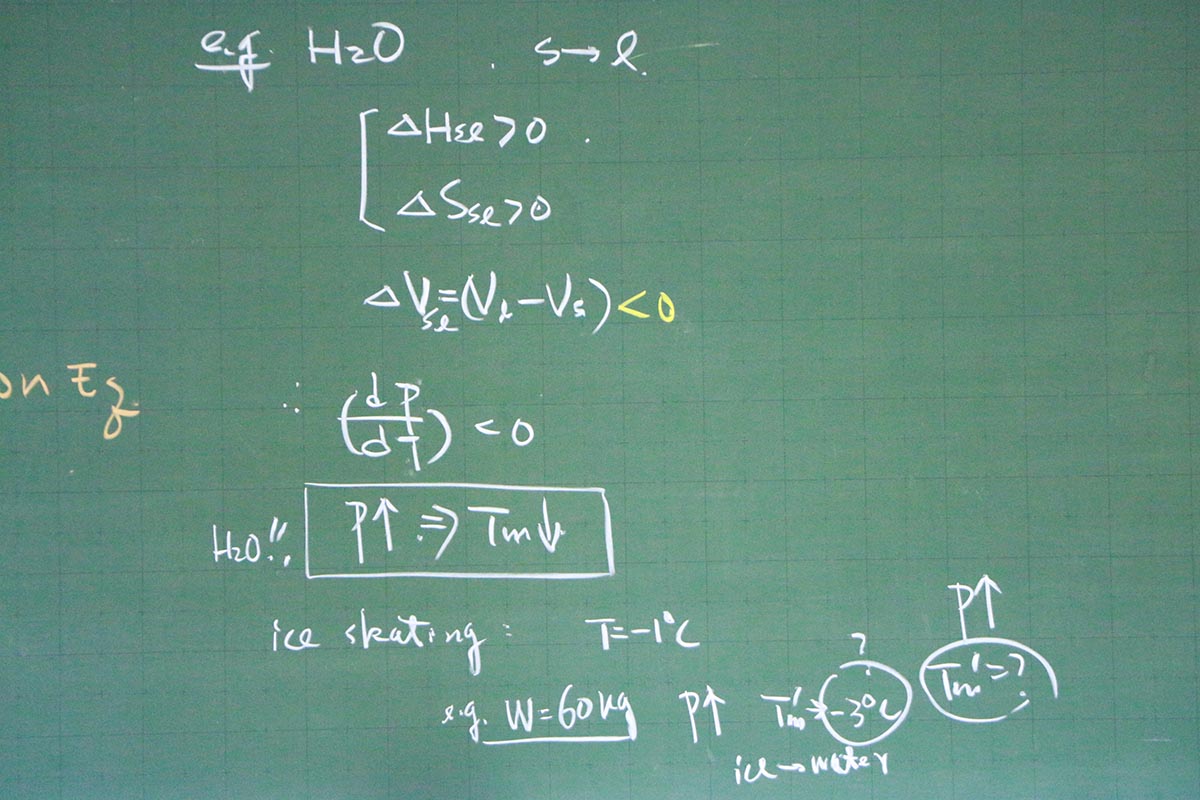 e.g. H₂O . s→l.
ΔHsl>0 .
ΔSsl>0
ΔVsl=(Vl-Vs)<0
on Eq
∴ (dP/dT) < 0
H₂O!! P↑ ⇒ Tm↓
ice skating : T=-1°C
P↑
? Tm'=?
e.g. W=60kg P↑ Tm'→-3°C
ice→water